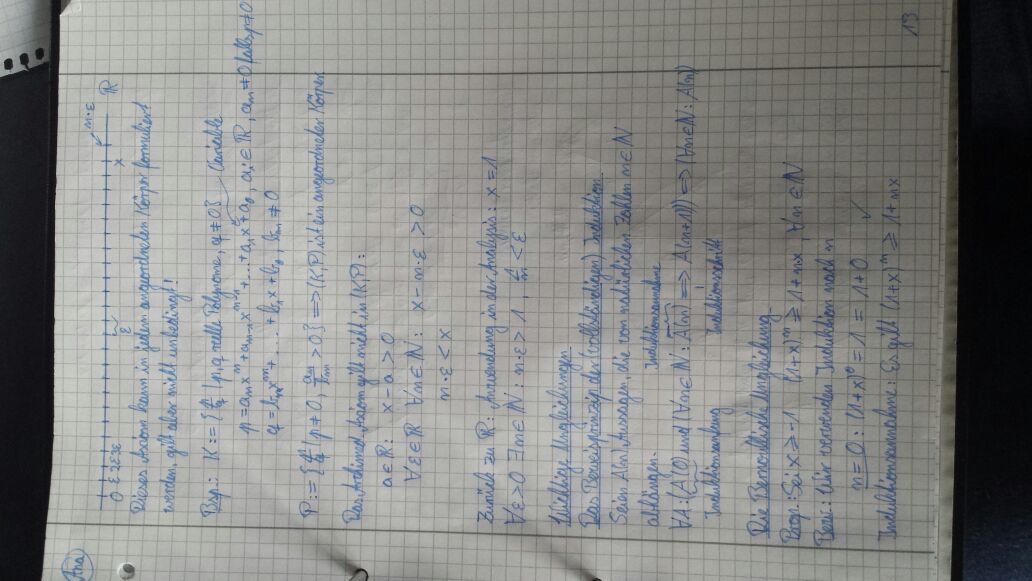 Ana
0 ε 2ε 3ε ε x m·ε ℝ
Dieses Axiom kann in jedem angeordneten Körper formuliert
werden, gilt aber nicht unbedingt!
Bsp.: K := {p/q | p, q reelle Polynome, q ≠ 0} Variable
p = aₙxⁿ + aₙ₋₁xⁿ⁻¹ + ... + a₁x + a₀, aᵢ ∈ ℝ, aₙ ≠ 0 falls p ≠ 0
q = bₘxᵐ + ... + b₁x + b₀, bₘ ≠ 0
P := {p/q | p ≠ 0, aₙ/bₘ > 0} ⟹ (K,P) ist ein angeordneter Körper
Das Archimed. Axiom gilt nicht in (K,P):
a ∈ ℝ: x - a > 0
∀ε ∈ ℝ ∀n ∈ ℕ: x - n·ε > 0
n·ε < x
Zurück zu ℝ: Anwendung in der Analysis: x = 1
∀ε > 0 ∃n ∈ ℕ: n·ε > 1, 1/n < ε
Wichtige Ungleichungen
Das Beweisprinzip der (vollständigen) Induktion
Seien A(n) Aussagen, die von natürlichen Zahlen n ∈ ℕ
abhängen. Induktionsannahme
∀A: (A(0) und (∀n ∈ ℕ: A(n) ⟹ A(n+1))) ⟹ (∀n ∈ ℕ: A(n))
Induktionsanfang Induktionsschritt
Die Bernoullische Ungleichung
Prop.: Sei x ≥ -1 (1+x)ⁿ ≥ 1 + nx, ∀n ∈ ℕ
Bew.: Wir verwenden Induktion nach n
n = 0: (1+x)⁰ = 1 = 1 + 0 ✓
Induktionsannahme: Es gilt (1+x)ⁿ ≥ 1 + nx
13